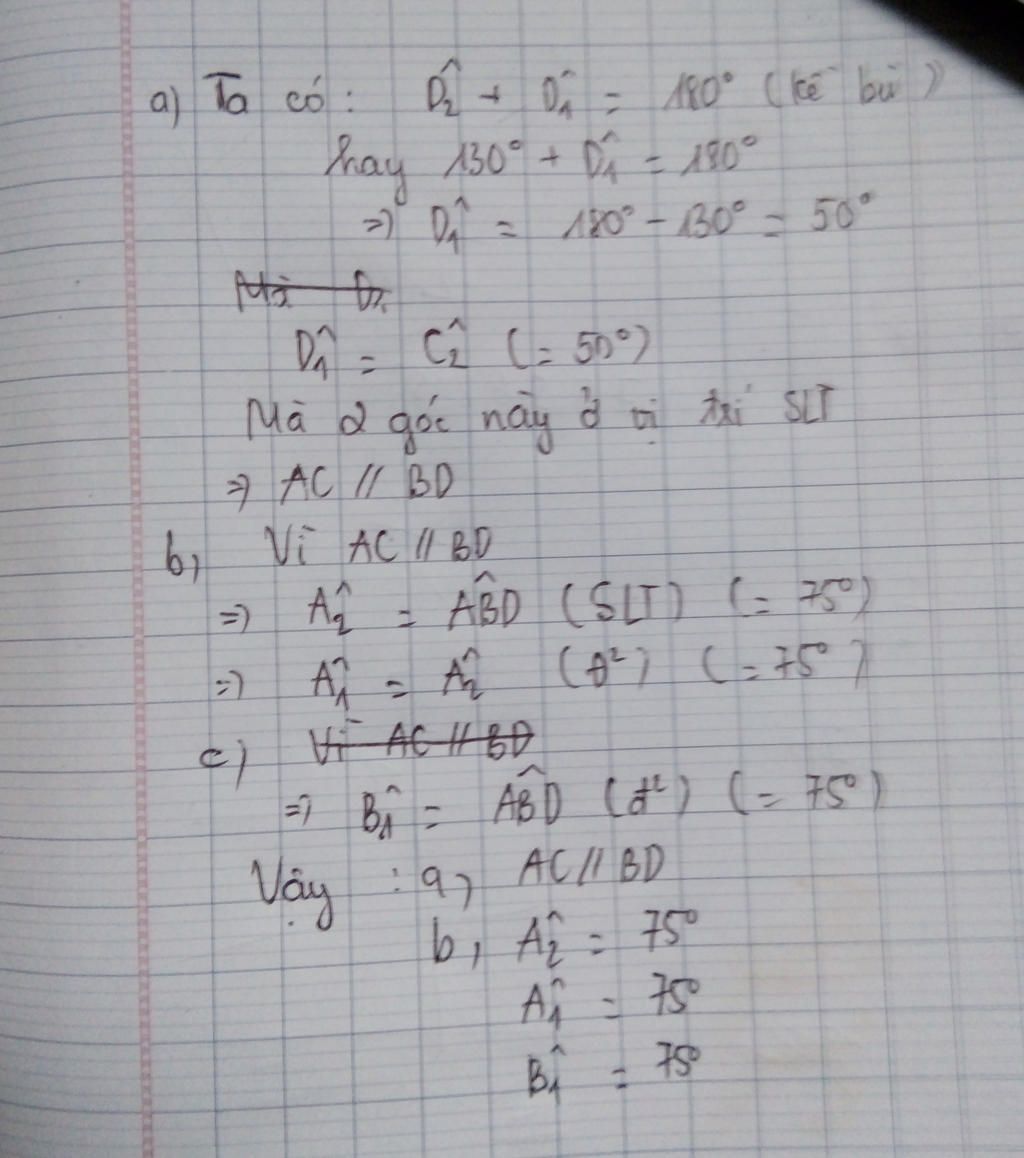 a) Ta có : D̂₂ + D̂₁ = 180° (kề bù)
hay 130° + D̂₁ = 180°
=) D̂₁ = 180° - 130° = 50°
Mà D̂₁
D̂₁ = Ĉ₂ (= 50°)
Mà 2 góc này ở vị trí SLT
=) AC // BD
b, Vì AC // BD
=) Â₂ = AB̂D (SLT) (= 75°)
=) Â₁ = Â₂ (đ²) (= 75°)
c) Vì AC // BD
=) B̂₁ = AB̂D (đ²) (= 75°)
Vậy : a, AC // BD
b, Â₂ = 75°
Â₁ = 75°
B̂₁ = 75°